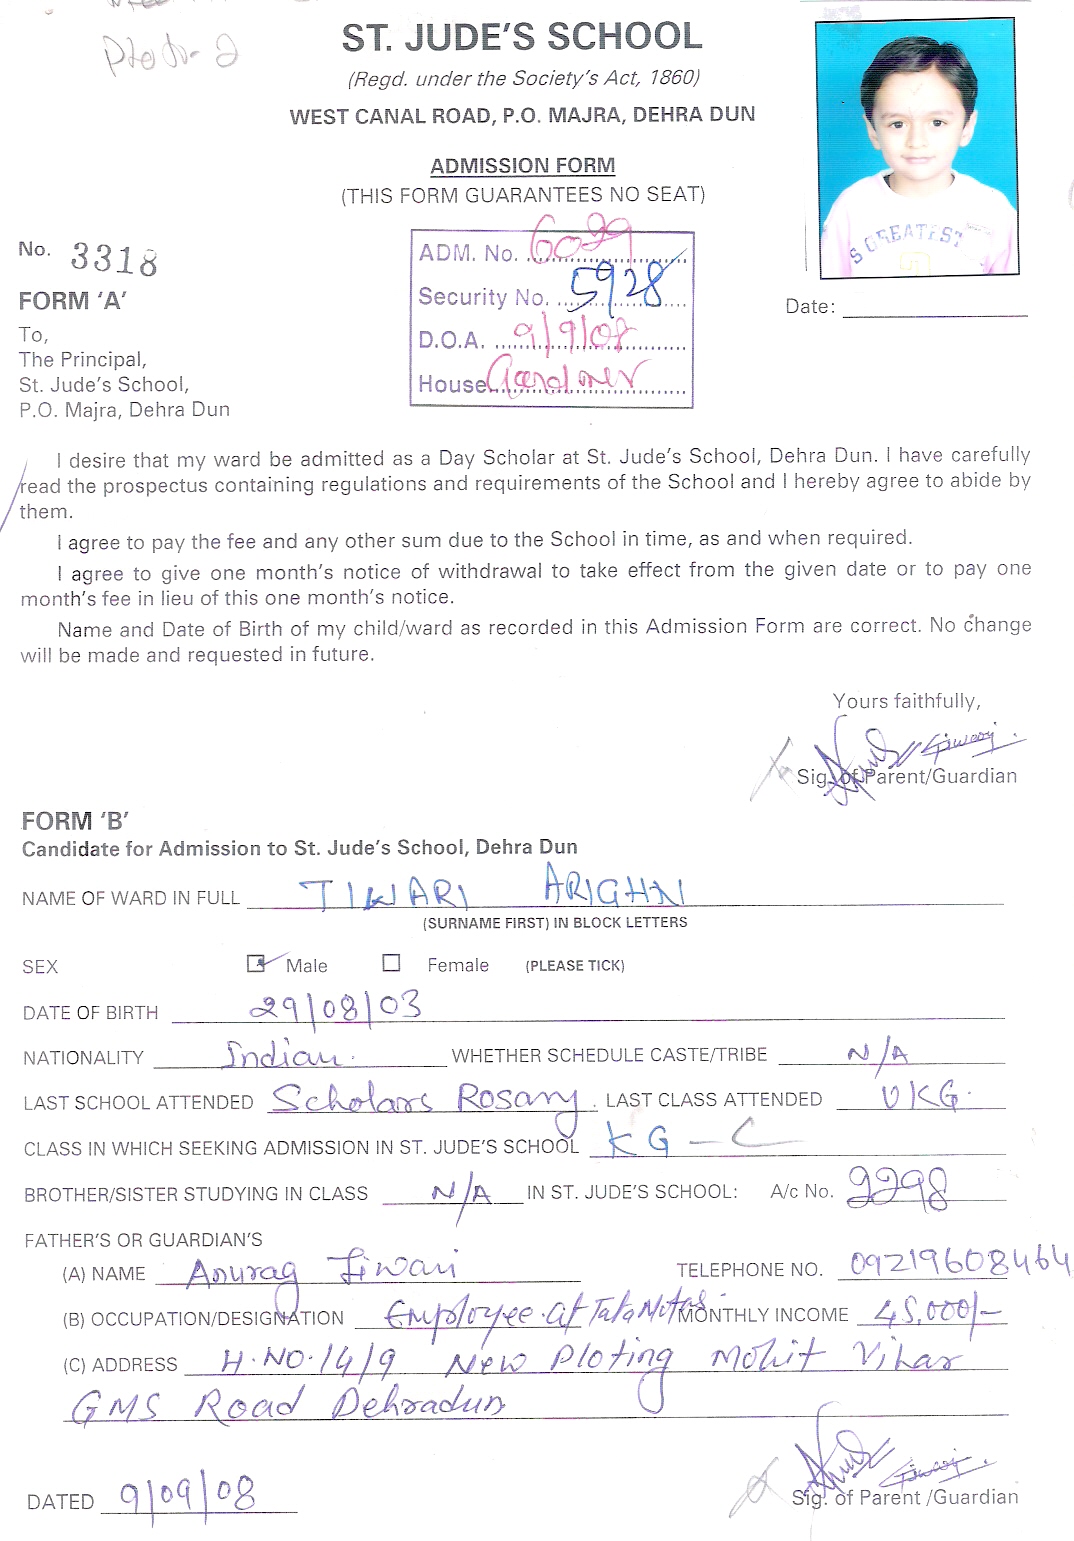 ST. JUDE'S SCHOOL
(Regd. under the Society's Act, 1860)
WEST CANAL ROAD, P.O. MAJRA, DEHRA DUN
ADMISSION FORM
(THIS FORM GUARANTEES NO SEAT)
S GREATEST
No. 3318
ADM. No. 6099
Security No. 5928
D.O.A. 9/9/08
House Gardner
Date:
FORM 'A'
To,
The Principal,
St. Jude's School,
P.O. Majra, Dehra Dun
I desire that my ward be admitted as a Day Scholar at St. Jude's School, Dehra Dun. I have carefully
read the prospectus containing regulations and requirements of the School and I hereby agree to abide by
them.
I agree to pay the fee and any other sum due to the School in time, as and when required.
I agree to give one month's notice of withdrawal to take effect from the given date or to pay one
month's fee in lieu of this one month's notice.
Name and Date of Birth of my child/ward as recorded in this Admission Form are correct. No change
will be made and requested in future.
Yours faithfully,
Sig. of Parent/Guardian
FORM 'B'
Candidate for Admission to St. Jude's School, Dehra Dun
NAME OF WARD IN FULL TIWARI ARIGHN
(SURNAME FIRST) IN BLOCK LETTERS
SEX Male Female (PLEASE TICK)
DATE OF BIRTH 29/08/03
NATIONALITY Indian. WHETHER SCHEDULE CASTE/TRIBE N/A
LAST SCHOOL ATTENDED Scholars Rosary. LAST CLASS ATTENDED UKG.
CLASS IN WHICH SEEKING ADMISSION IN ST. JUDE'S SCHOOL KG - C
BROTHER/SISTER STUDYING IN CLASS N/A IN ST. JUDE'S SCHOOL: A/c No. 2298
FATHER'S OR GUARDIAN'S
(A) NAME Anurag Tiwari TELEPHONE NO. 09219608464
(B) OCCUPATION/DESIGNATION Employee at Tata Motors. MONTHLY INCOME 45,000/-
(C) ADDRESS H.NO.14/9 New Ploting Mohit Vihar
GMS Road Dehradun
DATED 9/09/08
Sig. of Parent /Guardian